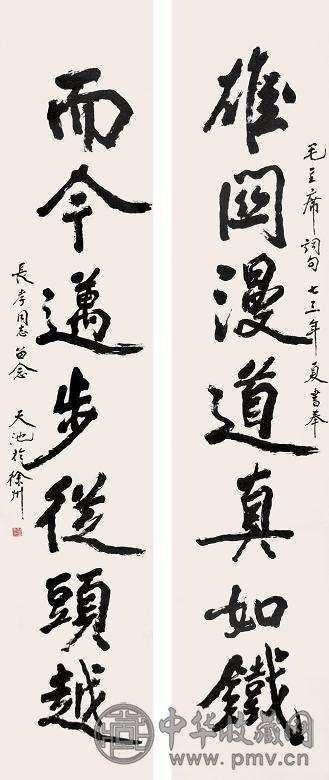 毛主席词句 七三年夏書奉
雄関漫道真如鐵
而今邁步從頭越
長孝同志留念 天池於徐州
中华收藏网
www.pmv.cn